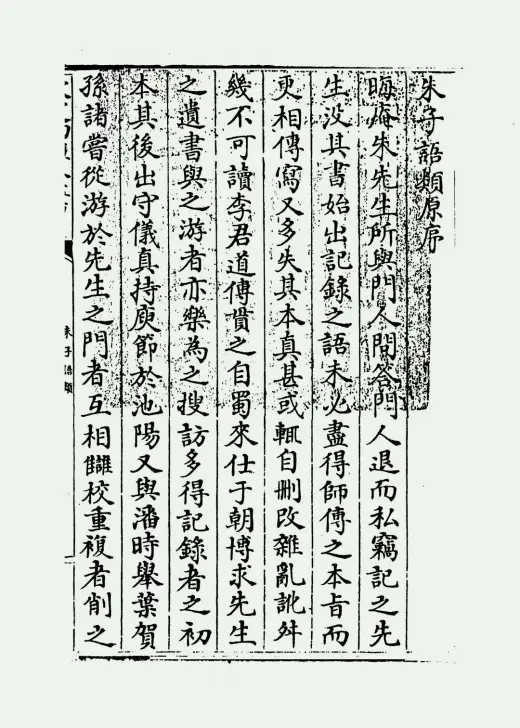 朱子語類原序
晦庵朱先生所與門人問答門人退而私竊記之先
生没其書始出記錄之語未必盡得師傳之本旨而
更相傳寫又多失其本真甚或輒自刪改雜亂訛舛
幾不可讀李君道傳貫之自蜀來仕于朝博求先生
之遺書與之游者亦樂為之搜訪多得記錄者之初
本其後出守儀真持庾節於池陽又與潘時舉葉賀
孫諸嘗從游於先生之門者互相讎校重複者削之
朱子語類